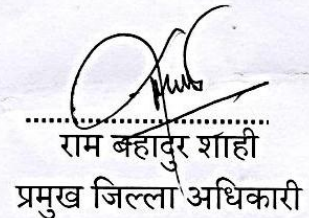 राम बहादुर शाही
प्रमुख जिल्ला अधिकारी